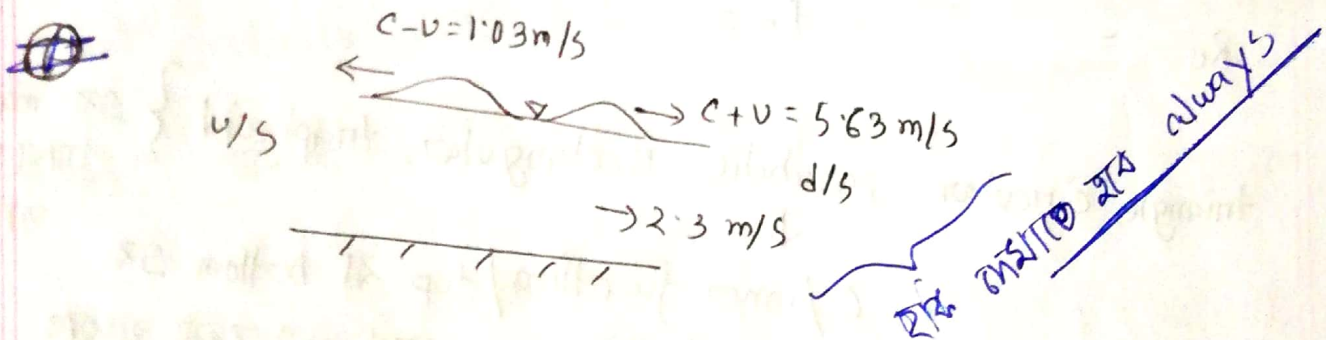 C-v=1.03m/s
u/s
→ C+v = 5.63 m/s
d/s
→2.3 m/s
হবে always